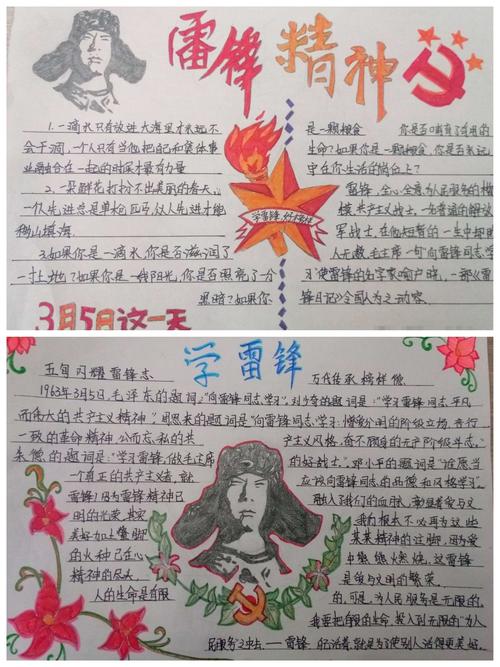 雷锋精神
1.一滴水只有放进大海里才永远不
会干涸,一个人只有当他把自己和集体事
业融合在一起的时候才最有力量
2.一朵鲜花打扮不出美丽的春天,
一个人先进总是单枪匹马,众人先进才能
移山填海
3.如果你是一滴水,你是否滋润了
一寸土地?如果你是一线阳光,你是否照亮了一分
黑暗?如果你
3月5日这一天
学雷锋,好榜样
是一颗粮食
你是否哺育了有用的
生命?如果你是一颗螺丝钉,你是否永远
守在你生活的岗位上?
雷锋,全心全意为人民服务的楷
模,共产主义战士,一名普通的解放
军战士,在他短暂的一生中帮助
人无数,毛主席一句"向雷锋同志学
习"使雷锋的名字家喻户晓,一部《雷
锋日记》令国人为之动容.
学雷锋
五旬闪耀雷锋志
万代传承榜样德
1963年3月5日,毛泽东的题词"向雷锋同志学习".刘少奇的题词是:"学习雷锋同志平凡
而伟大的共产主义精神".周恩来的题词是"向雷锋同志学习:憎爱分明的阶级立场,言行
一致的革命精神,公而忘私的共
产主义风格,奋不顾身的无产阶级斗志."
朱德的题词是:"学习雷锋,做毛主席
的好战士".邓小平的题词是"谁愿当
一个真正的共产主义者,就
应该向雷锋同志的品德和风格学习".
雷锋!因为雷锋精神已
融入了我们的血脉,彰显着爱与文
明的光荣.其实
我们根本不必再为这些
美好加上蹩脚
某某精神的注脚,因为爱
的火种已在心
中燃燃燃烧,这雷锋
精神的尽头
是爱与文明的繁荣.
人的生命是有限
的,可是,为人民服务是无限的,
我要把有限的生命,投入到无限的"为人
民服务"之中去——雷锋